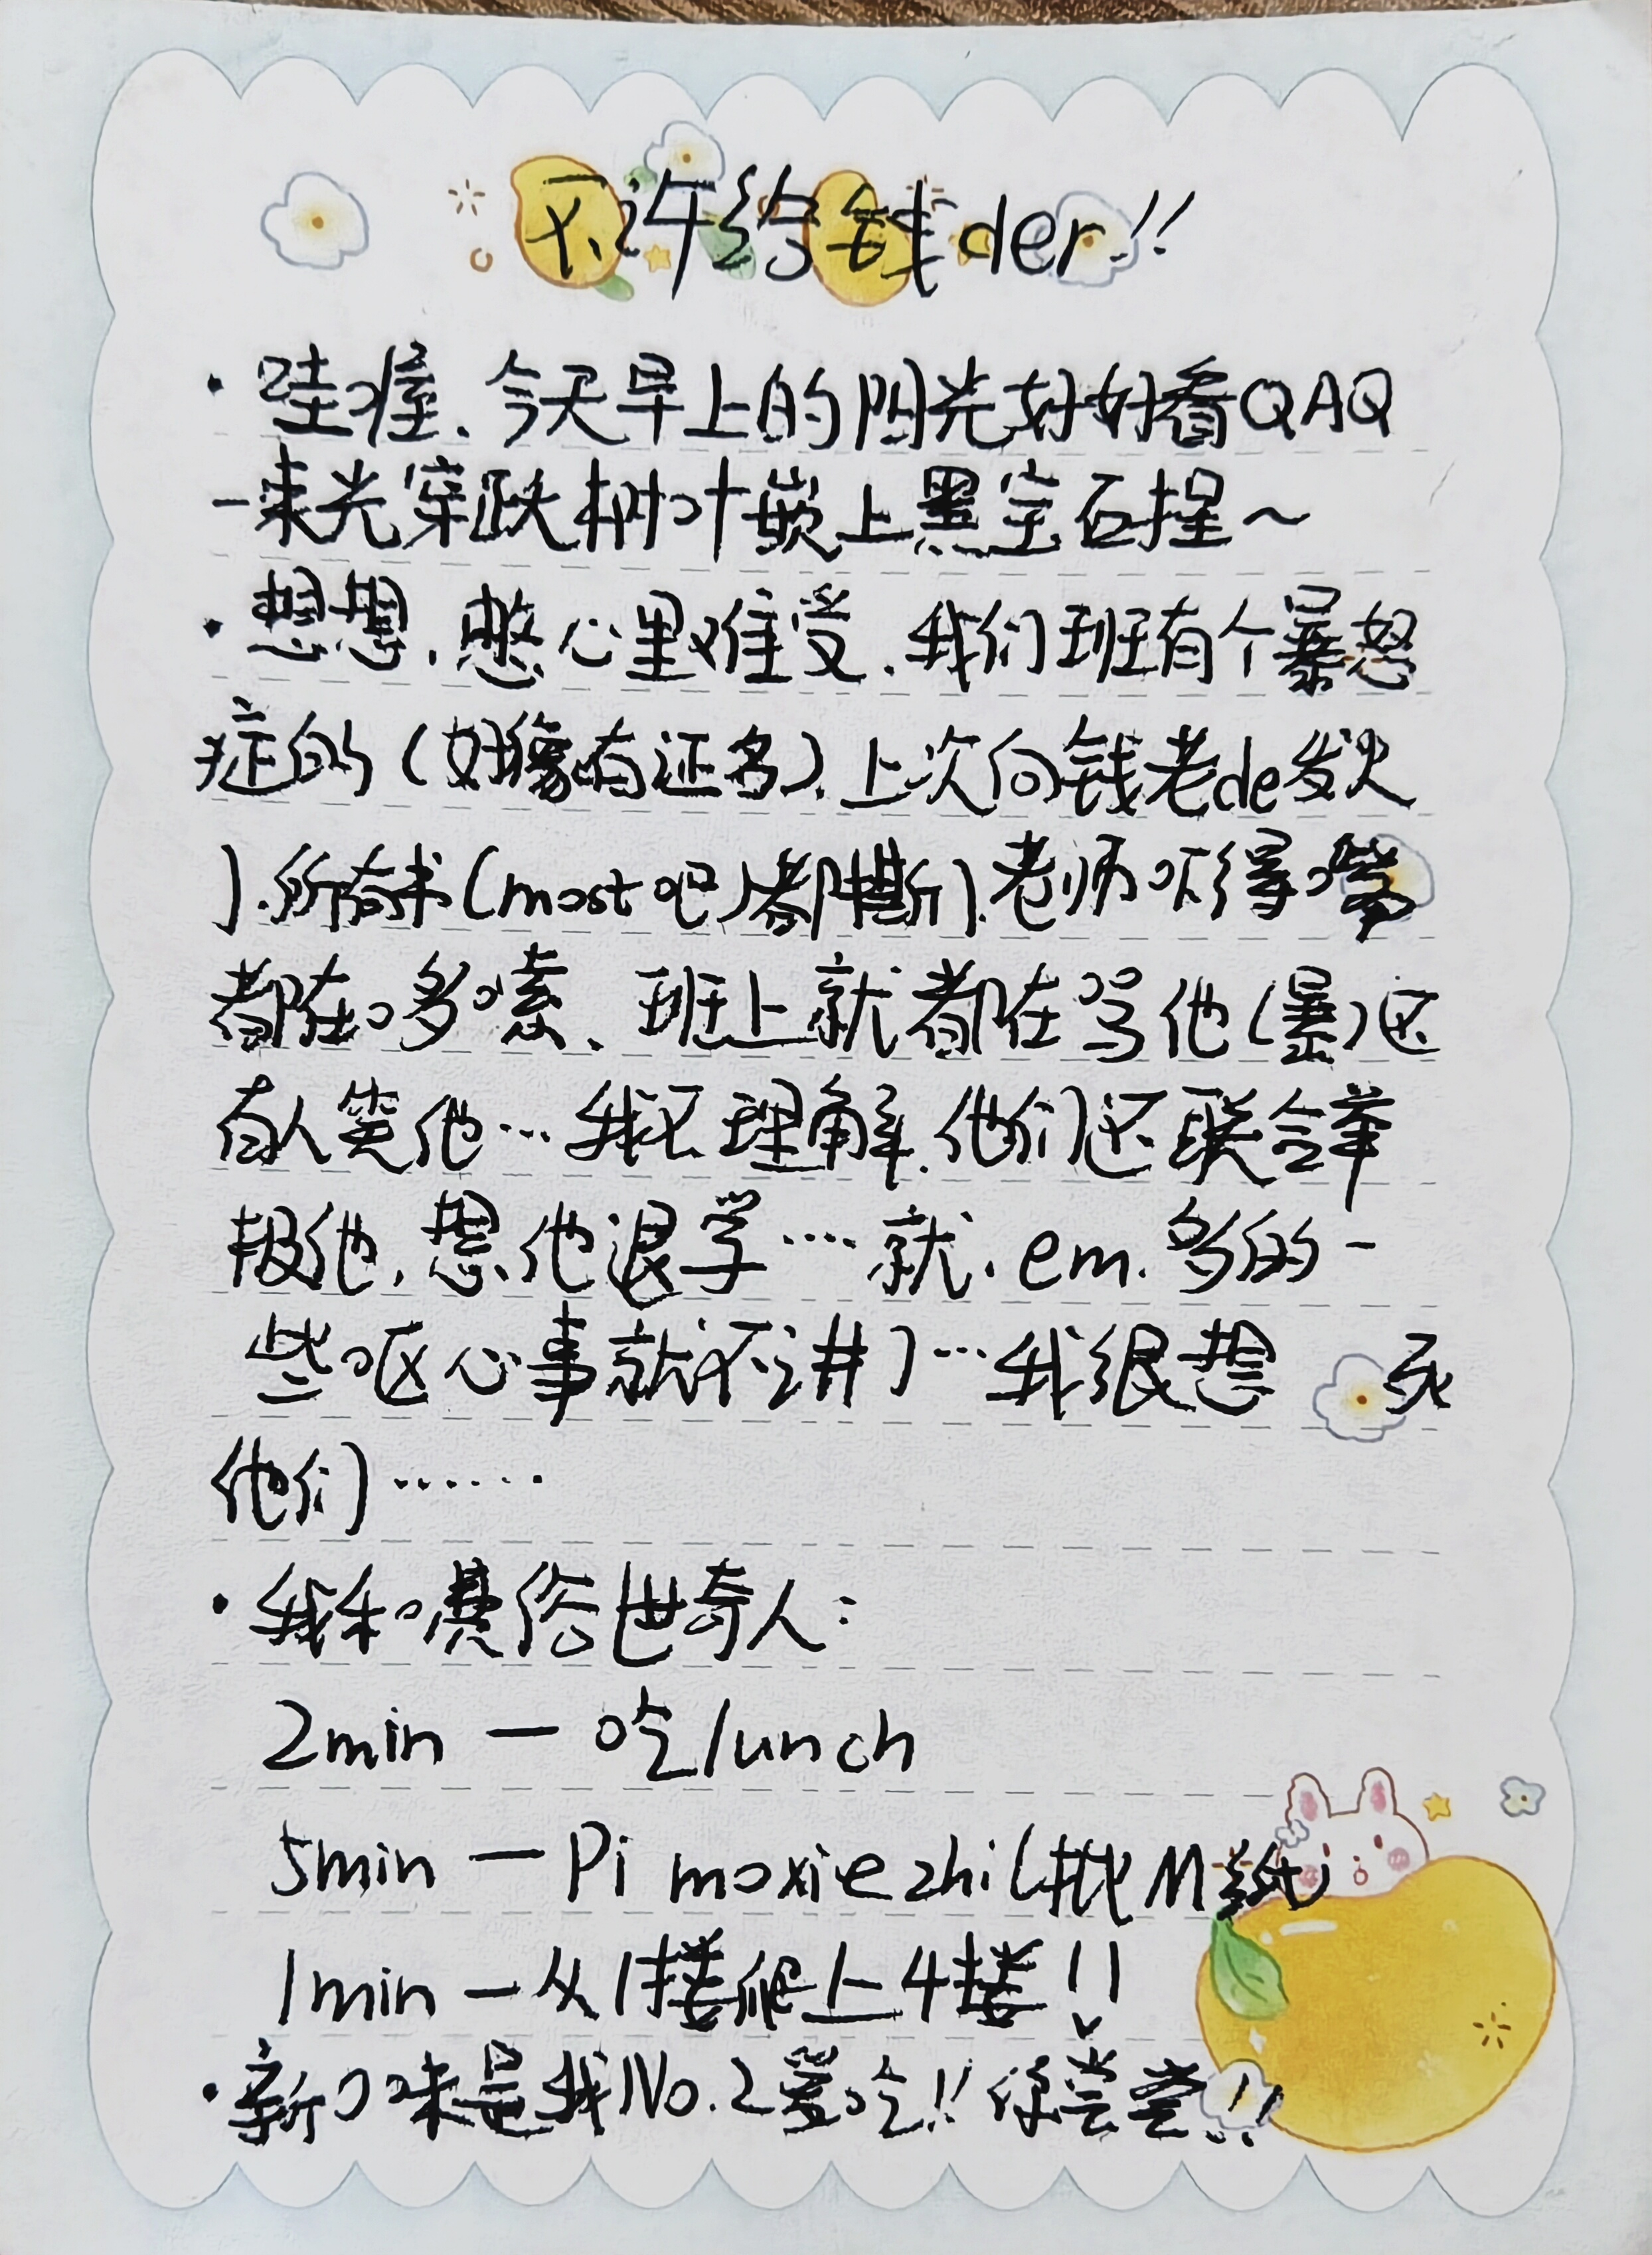 不许给钱der!!
· 哇噻.今天早上的阳光好好看QAQ
一束光穿跃树叶嵌上黑宝石捏~
· 想想.憋心里难受.我们班有个暴怒
症的(好像有证名).上次向钱老de发火
了.所有书(most吧)都撕了.老师吓得嘴
都在哆嗦、班上就都在骂他(暴)还
有人笑他…我不理解.他们还联合举
报他.想他退学….就.em.多的一
些呕心事就不讲了…我很想 死
他们……
· 我和噢俗世奇人:
2min — 吃lunch
5min — Pi moxiezhi(批M纸
1min — 从1楼爬上4楼!!
· 新口味是我No.2爱吃!!你尝尝!!